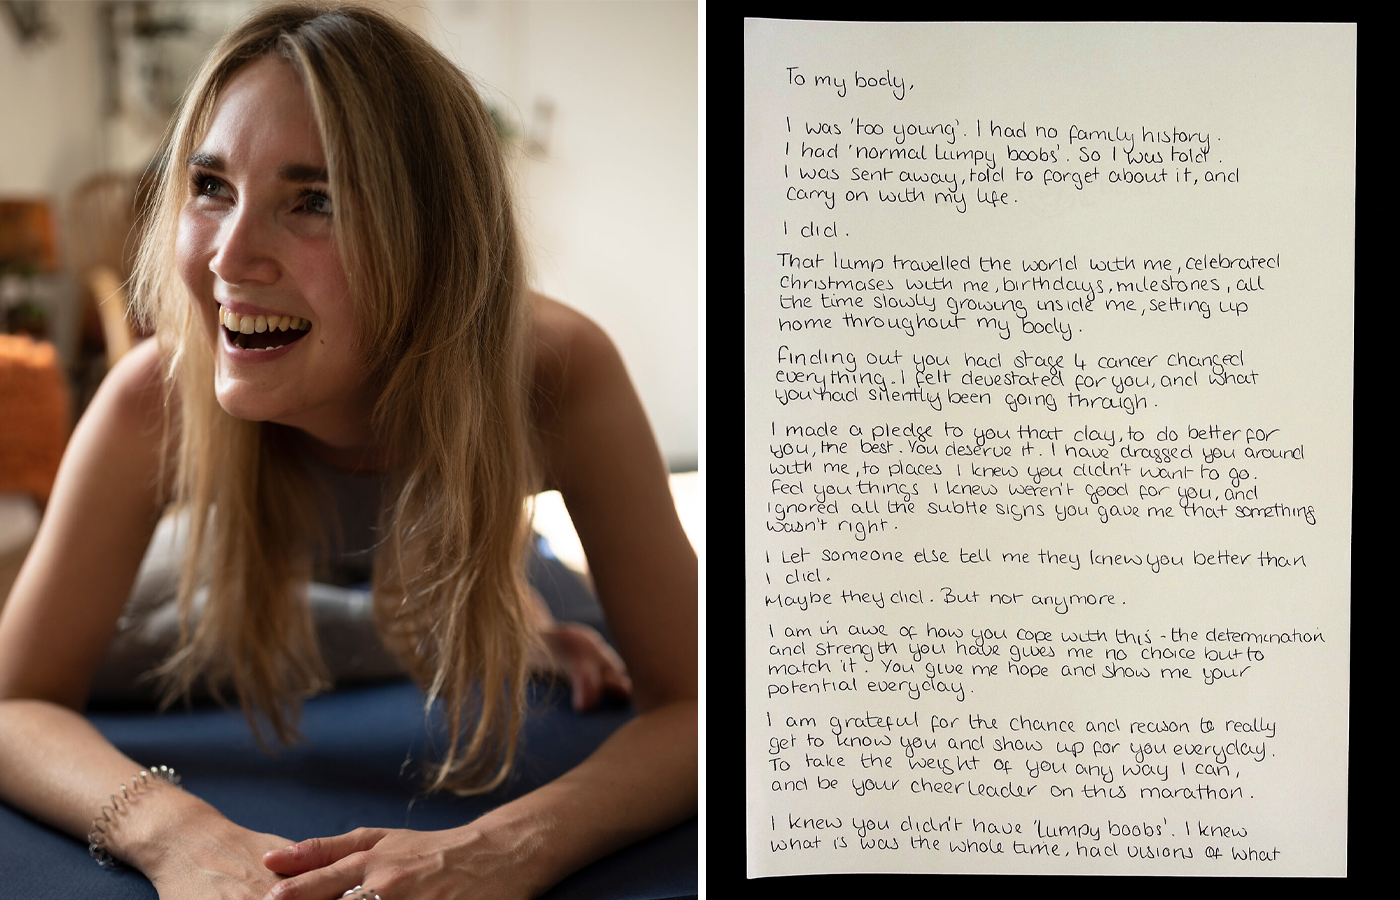 To my body,
I was 'too young'. I had no family history.
I had 'normal lumpy boobs'. So I was told.
I was sent away, told to forget about it, and
carry on with my life.
I did.
That lump travelled the world with me, celebrated
Christmases with me, birthdays, milestones, all
the time slowly growing inside me, setting up
home throughout my body.
Finding out you had stage 4 cancer changed
everything. I felt devestated for you, and what
you had silently been going through.
I made a pledge to you that day, to do better for
you, the best. You deserve it. I have dragged you around
with me, to places I knew you didn't want to go.
Fed you things I knew weren't good for you, and
ignored all the subtle signs you gave me that something
wasn't right.
I let someone else tell me they knew you better than
I did.
Maybe they did. But not anymore.
I am in awe of how you cope with this - the determination
and strength you have gives me no choice but to
match it. You give me hope and show me your
potential everyday.
I am grateful for the chance and reason to really
get to know you and show up for you everyday.
To take the weight of you any way I can,
and be your cheerleader on this marathon.
I knew you didn't have 'lumpy boobs'. I knew
what is was the whole time, had visions of what